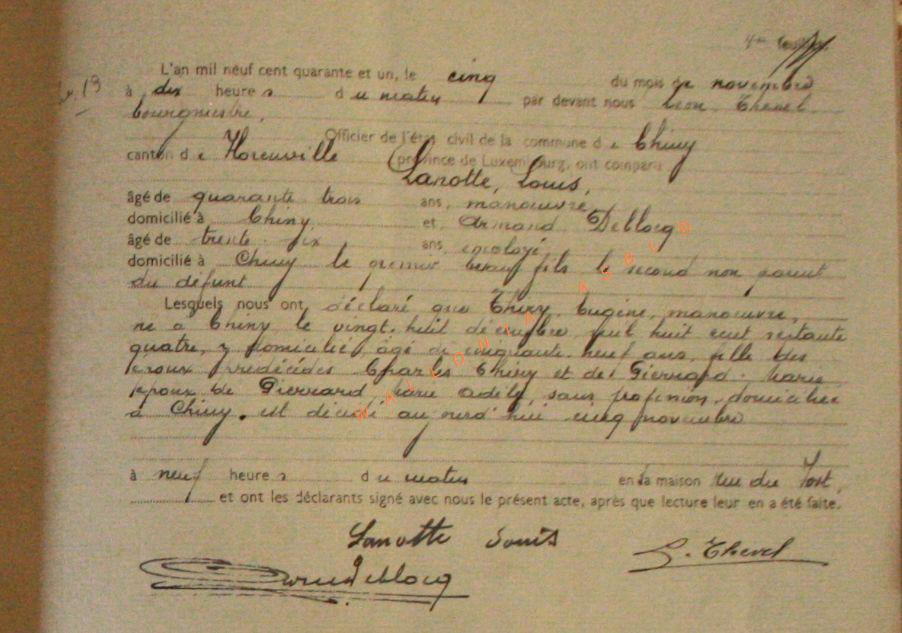 N° 13
L'an mil neuf cent quarante et un, le cinq du mois de novembre
à dix heures du matin par devant nous Léon Thevel
bourgmestre,
Officier de l'état civil de la commune de Chiny
canton de Florenville (province de Luxembourg, ont comparu
Lanotte, Louis,
âgé de quarante trois ans, manœuvre
domicilié à Chiny, et Armand Deblocq
âgé de trente six ans, employé
domicilié à Chiny le premier beau fils le second non parent
du défunt
Lesquels nous ont déclaré que Thiry, Eugène, manœuvre,
né à Chiny le vingt huit décembre mil huit cent septante
quatre, y domicilié, âgé de cinquante neuf ans, fils des
époux prédécédés Charles Thiry et de Pierrard Marie
époux de Pierrard Marie Adèle, sans profession, domiciliée
à Chiny, est décédé aujourd'hui cinq novembre
à neuf heures du matin en sa maison rue du Fort,
et ont les déclarants signé avec nous le présent acte, après que lecture leur en a été faite.
Lanotte Louis
L. Thevel
Deblocq